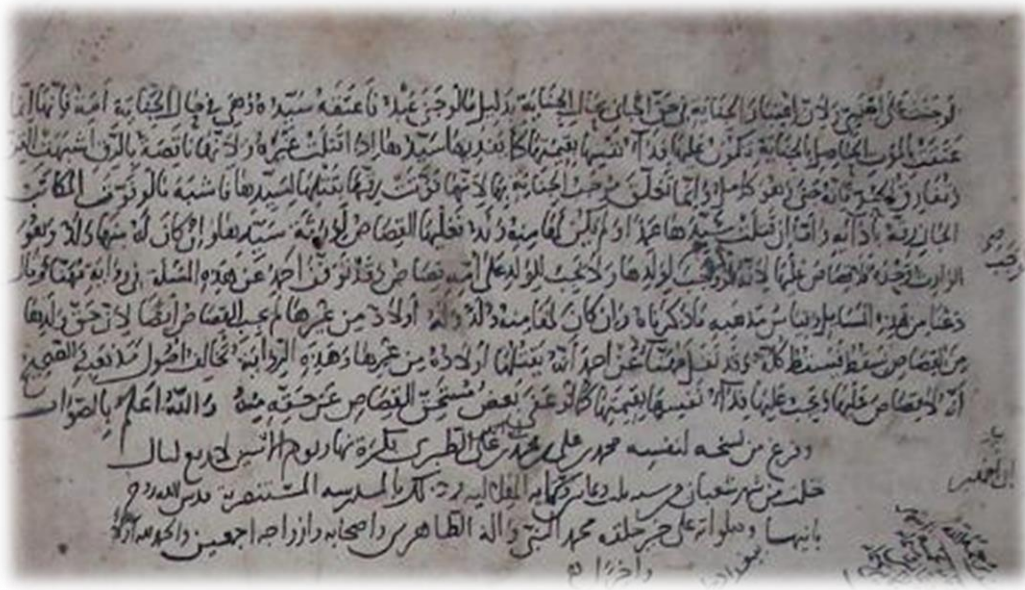 لو جنت على اجنبي ولان اعتبار الجناية في حق الجاني بحال الجناية بدليل ما لو جنى عبد فاعتقه سيده وهي في حال الجناية امة فانها انما
عتقت بالموت الحاصل بالجناية فيكون عليها فداء نفسها بقيمتها كما يفديها سيدها اذا قتلت غيره ولانها ناقصة بالرق اشبهت القن
وتفارق فانه حر وهو كامل وانما تعلق موجب الجناية بها لانها فوتت رقها بقتلها لسيدها فاشبه ما لو فوت المكاتب
الجاني رقه بادائه واما ان قتلت سيدها عمدا ولم يكن لها منه ولد فعليها القصاص لورثة سيدها وان كان له منها ولد وهو
الوارث وحده فلا قصاص عليها لانه لو وجب لوجب لولدها ولا يجب للولد على امه قصاص وقد توقف احمد عن هذه المسلة في رواية مهنا وقال
دعنا من هذه المسايل وقياس مذهبه ما ذكرناه وان كان لها منه ولد وله اولاد من غيرها لم يجب القصاص ايضا لان حق ولدها
من القصاص سقط فسقط كله وقد نقل مهنا عن احمد انه يقتلها اولاده من غيرها وهذه الرواية تخالف اصول مذهبه والصحيح
انه لا قصاص عليها ويجب عليها فداء نفسها بقيمتها كما لو عفى بعض مستحقي القصاص عن حقه منه والله اعلم بالصواب
وفرغ من نسخه لنفسه محمد بن علي بن محمد بن علي الطبري بكرة نهار يوم الاثنين لاربع ليال
خلت من شهر شعبان من سنة بالمدرسة المستنصرية قدس الله روح
بانيها وصلواته على خير خلقه محمد النبي واله الطاهرين واصحابه وازواجه اجمعين والحمد لله